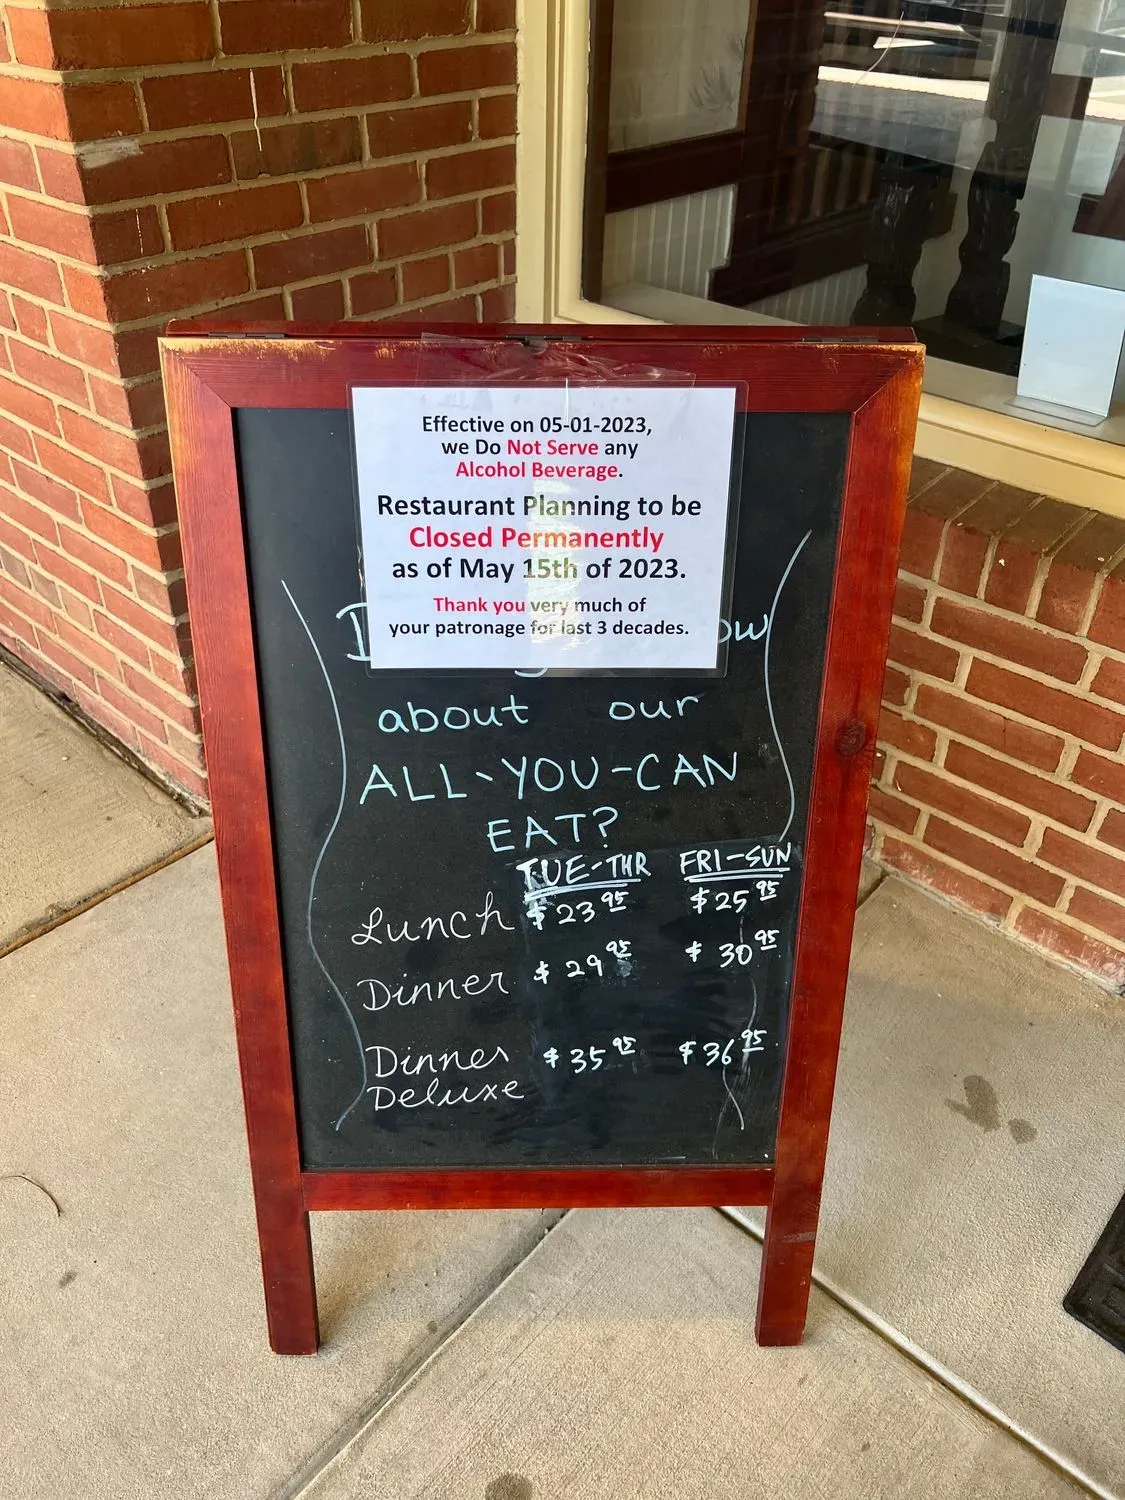 Effective on 05-01-2023,
we Do Not Serve any
Alcohol Beverage.
Restaurant Planning to be
Closed Permanently
as of May 15th of 2023.
Thank you very much of
your patronage for last 3 decades.
about our
ALL-YOU-CAN
EAT?
TUE-THR FRI-SUN
Lunch $23.95 $25.95
Dinner $29.95 $30.95
Dinner $35.95 $36.95
Deluxe